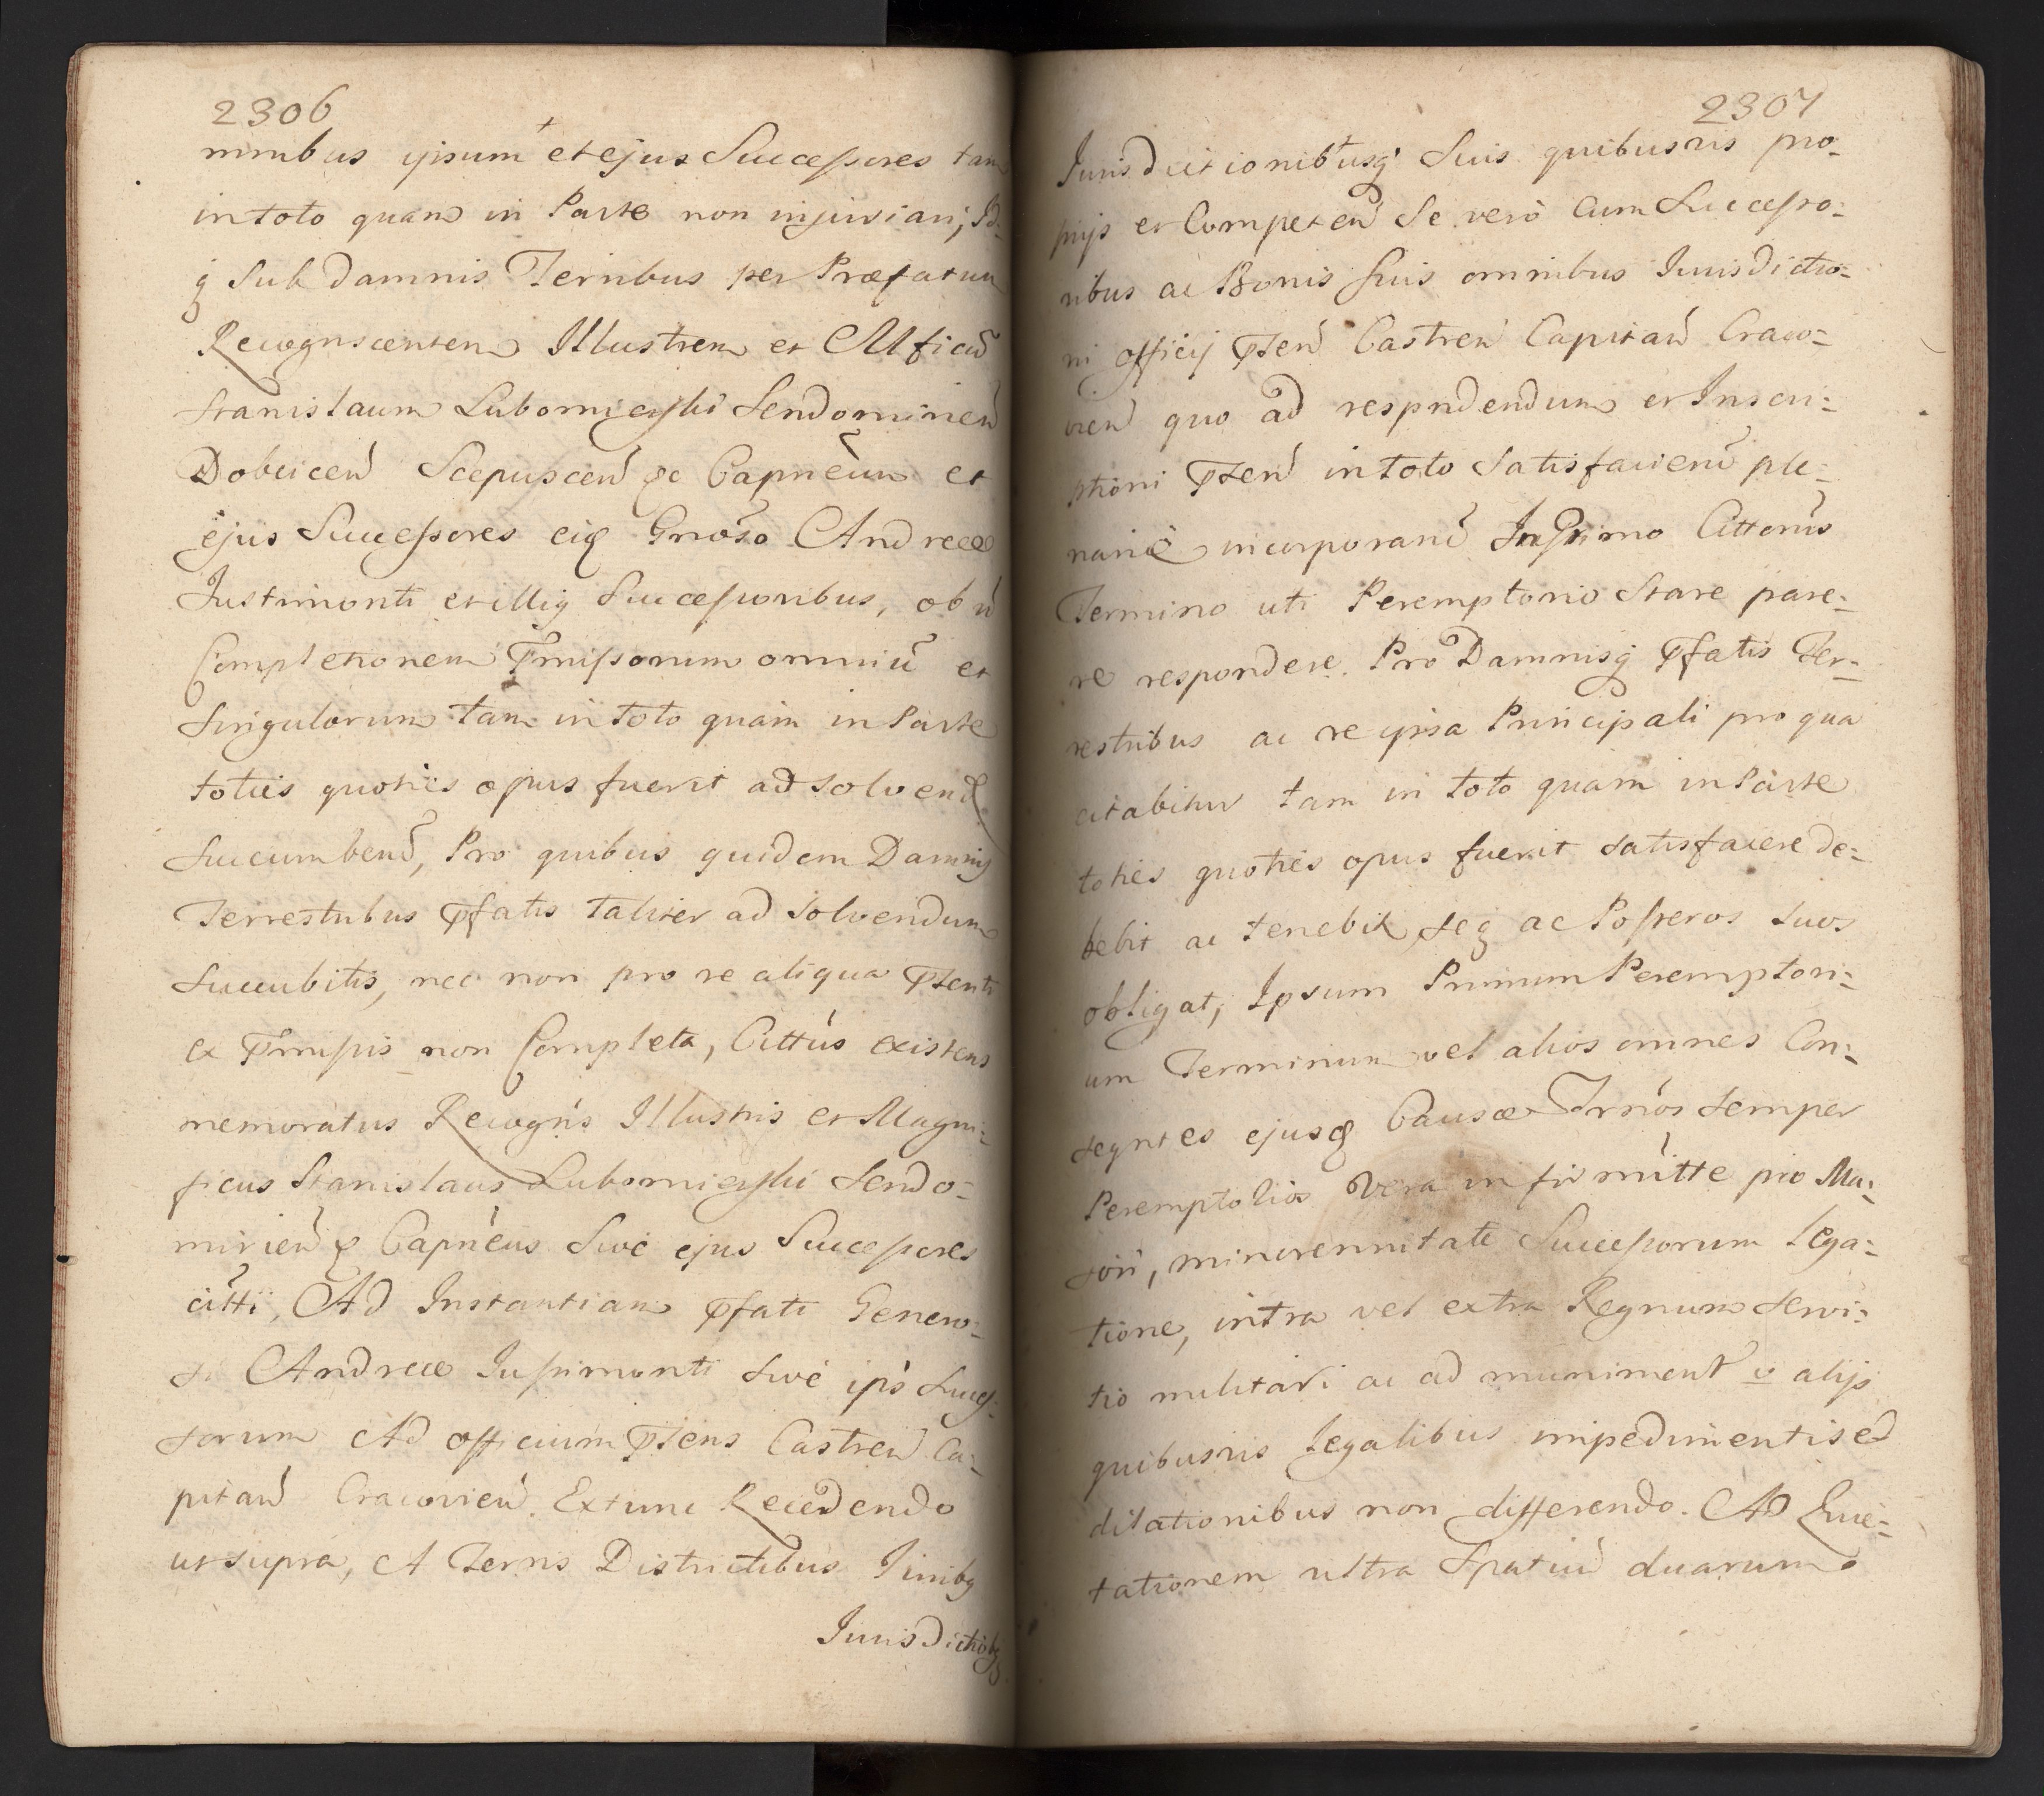 2306
minibus ipsum et ejus Successores tam
in toto quam in Parte non injuriari, Id:
q sub damnis Terribus per Præfatum
Recognoscentem Illustrem et Mficũ
Stanislaum Lubomierski Sendomirien
Dobcicen Scepuscen &c Capneum et
ejus Successores eiq Gnoso Andreæ
Justimonti et illiq Successoribus, ob ñ
Completionem Pmissorum omniũ et
Singulorum tam in toto quam in Parte
toties quoties opus fuerit ad solvend
succumbend, Pro quibus quidem Damnis
Terrestribus pfatis taliter ad solvendum
succubitis, nec non pro re aliqua psenti
ex Pmissis non Completa, Cittus existens
memoratus Recogns Illustris et Magni:
ficus Stanislaus Lubomierski Sendo:
mirien & Capneus Sive ejus Successores
citti, Ad Instantiam pfati Genero:
si Andreæ Jussimonti sive ips Succes:
sorum Ad officium psens Castren Ca:
pitan Cracovien. Extunc Recedendo
ut supra, A Terris Districtibus Juribq
Jurisdictiobq
2307
Jurisdictionibusq Suis quibusvis pro:
prijs et Competen Se vero Cum Successo:
ribus ac Bonis suis omnibus Jurisdictio:
ni officij psen Castren Capitan Craco:
vien quo ad respndendum et Inscri:
ptioni psen in toto Satisfaciend ple:
narie incorporand In Primo Cittonis
Termino uti Peremptorio Stare pare:
re respondere. Pro Damnisq pfatis Ter:
restribus ac re ipsa Principali pro qua
citabitur tam in toto quam in Parte
toties quoties opus fuerit satisfacere de:
bebit ac tenebit seq ac Posteros suos
obligat, Ipsum Primum Peremptori:
um Terminum vel alios omnes Con:
seqntes ejusq Causæ Trnos semper
Peremptorios Vera infirmitte pro Ma:
jori, minorennitate Successorum Lega:
tione, intra vel extra Regnum servi:
tio militari ac ad muniment v alijs
quibusvis Legalibus impedimentis ed
dilationibus non differendo. Ad Quie:
tationem ultra Spatiũ duarum